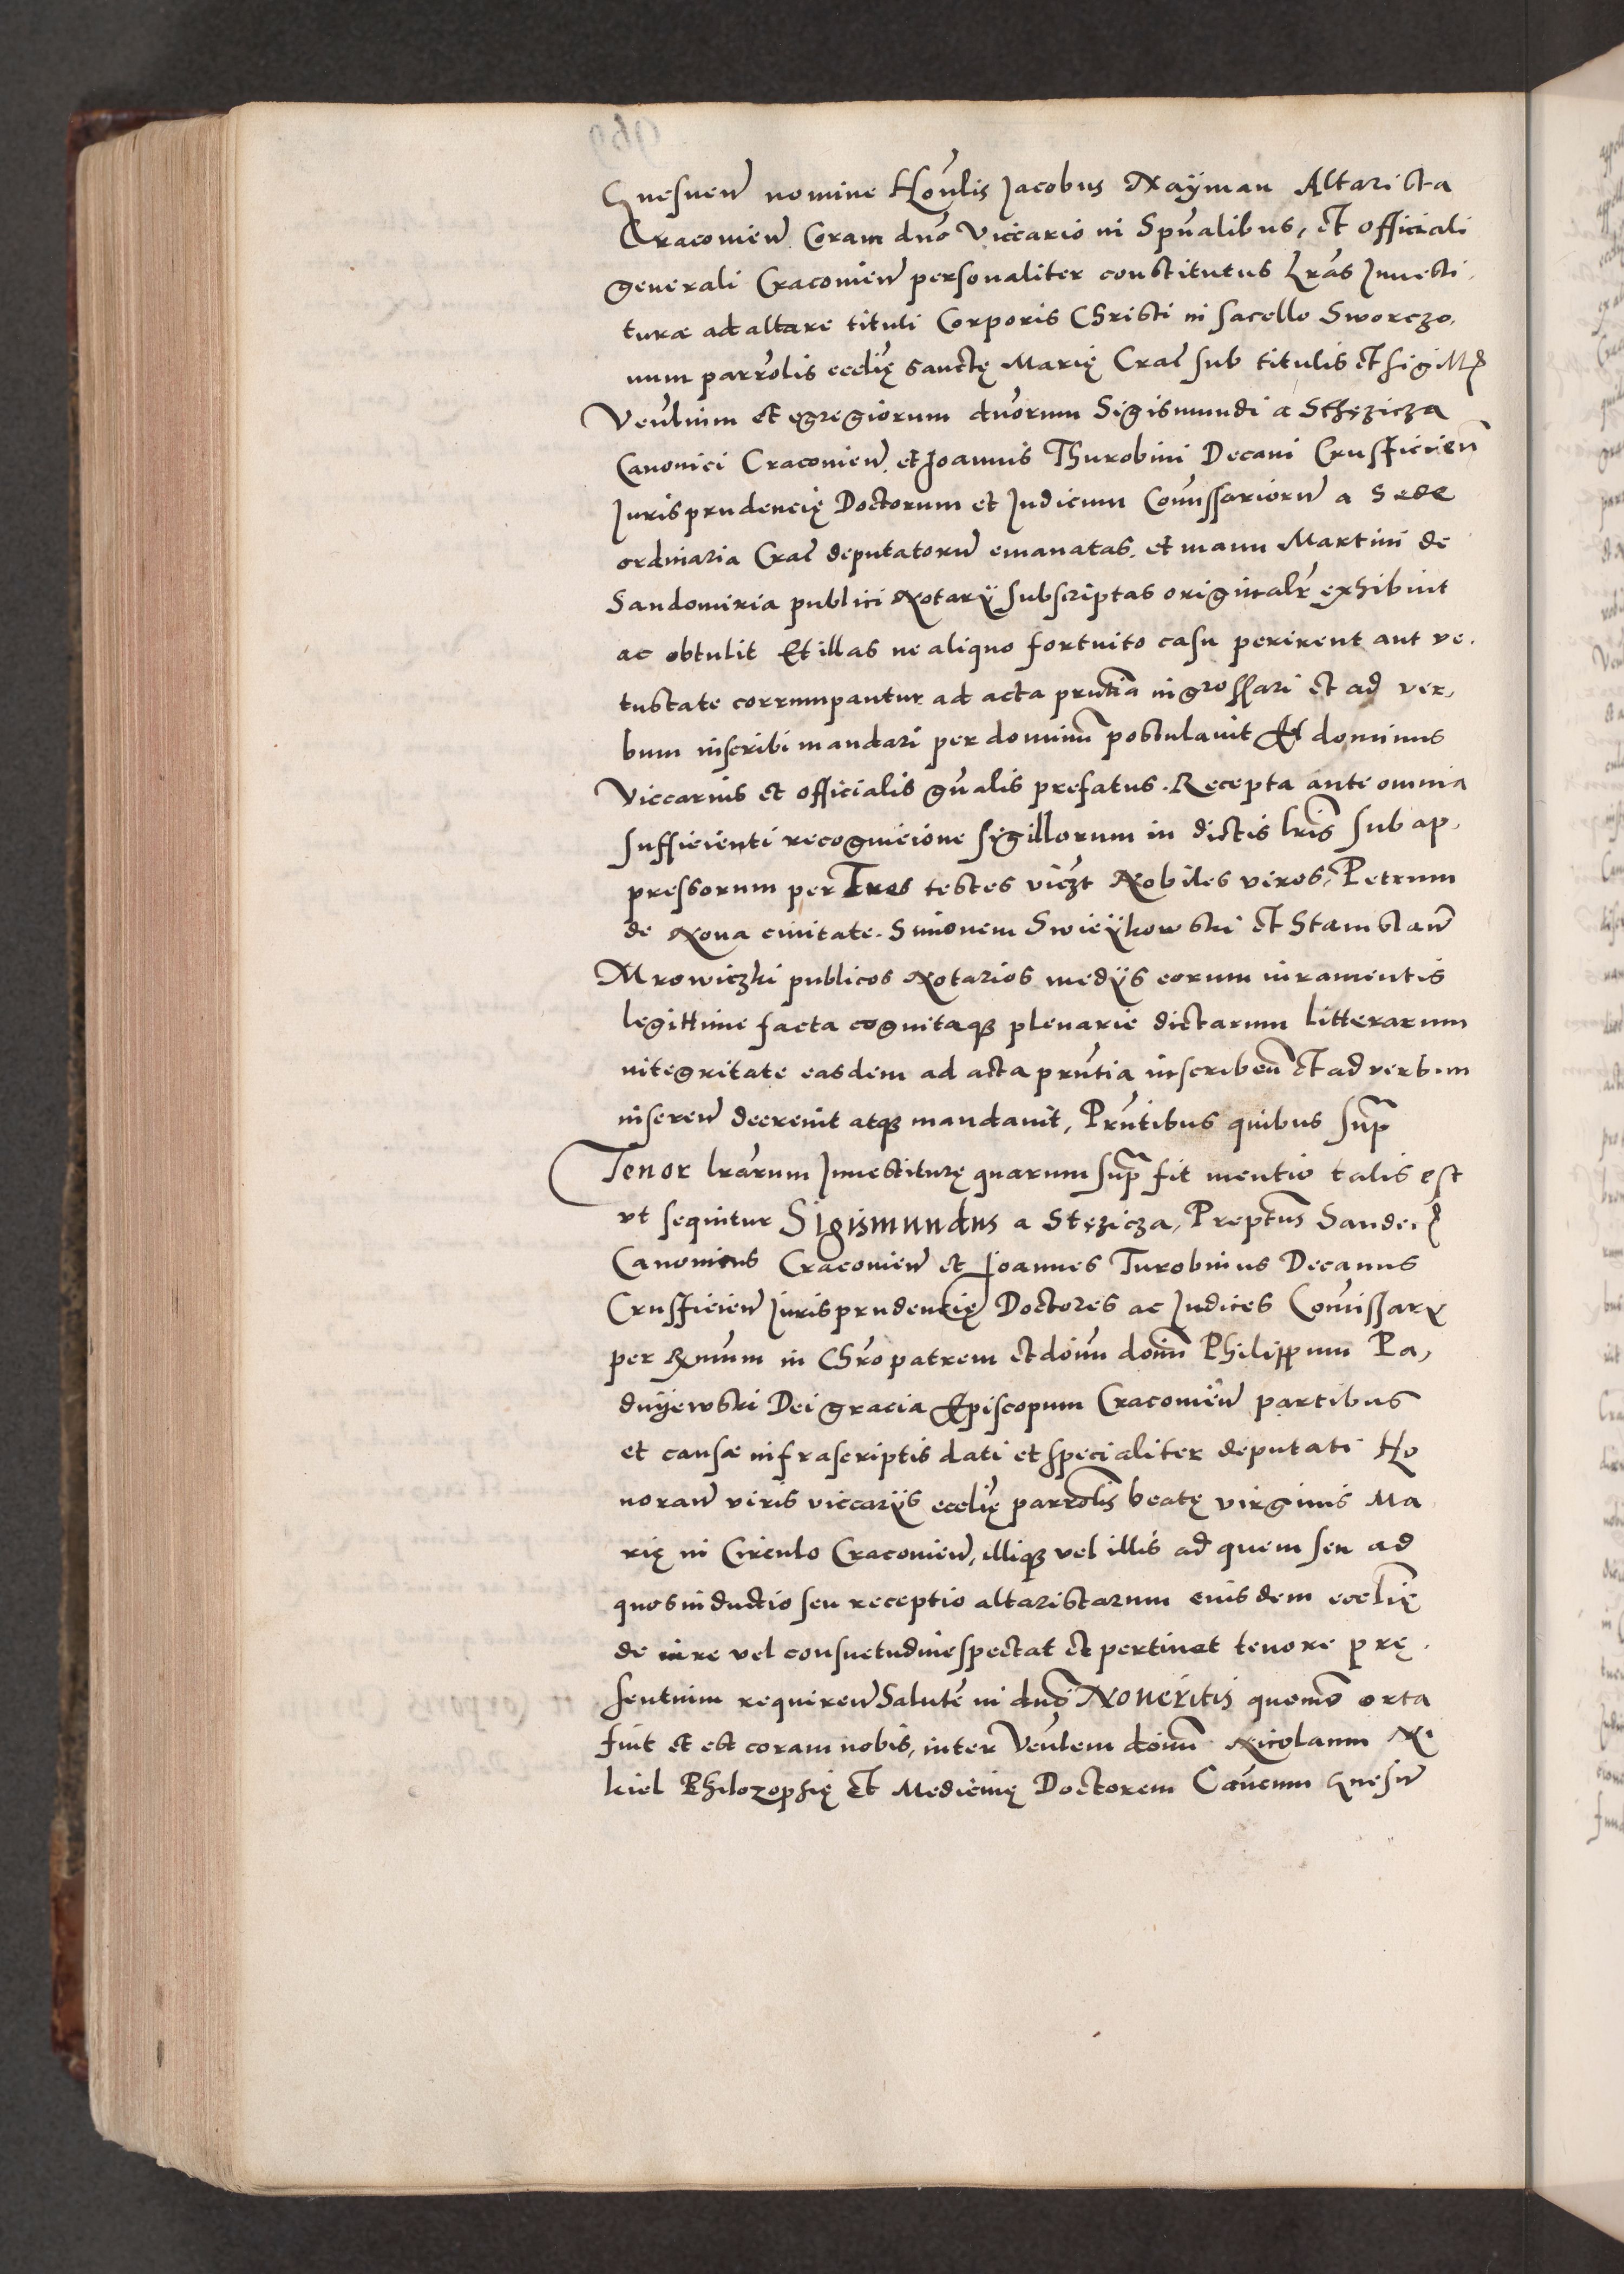 Gnesnen nomine Honlis Jacobus Nayman Altarista
Cracovien Coram dno Viccario in Spualibus, et officiali
generali Cracovien personaliter constitutus Lras Investi
turae ad altare tituli Corporis Christi in sacello Sworczo,
num parrolis ecclię sanctę Marię Crac sub titulis et sigill
Venlium et egregiorum dnorum Sigismundi a Sthęzicza
Canonici Cracovien et Joannis Thurobini Decani Crusficien
Jurisprudencię Doctorum et Judicum Comissariorum a Sede
ordinaria Crac deputatorum emanatas, et manu Martini de
Sandomiria publici Notarÿ subscriptas originalr exhibuit
ac obtulit Et illas ne aliquo fortuito casu perirent aut ve.
tustate corrumpantur ad acta prntia ingrossari et ad ver,
bum inscribi mandari per dominum postulavit Et dominus
Viccarius et officialis gnalis prefatus. Recepta ante omnia
sufficienti recognicione sigillorum in dictis lris sub ap,
pressorum per Tres testes viczt Nobiles viros, Petrum
de Nova civitate. Simonem Swieÿkowski et Stanislaum
Mrowiczki publicos Notarios medÿs eorum iuramentis
legittime facta cognitaque plenarie dictarum litterarum
integritate easdem ad acta prntia inscriben et ad verbum
inseren decrevit atque mandavit, Prntibus quibus supra
Tenor lrarum Investiturę quarum supra fit mentio talis est
ut sequitur Sigismundus a Stęzicza, Preptus Sandec
Canonicus Cracovien et Joannes Turobinus Decanus
Crusficien Jurisprudencię Doctores ac Judices Comissarÿ
per Rmum in Chro patrem et domn domn Philippum Pa,
dnÿewski Dei gracia Episcopum Cracovien partibus
et causae infrascriptis dati et specialiter deputati Ho
noran viris viccarÿs ecclię parrolis beatę virginis Ma
rię in Circulo Cracovien, illique vel illis ad quem seu ad
quos inductio seu receptio altaristarum eiusdem ecclię
de iure vel consuetudine spectat et pertinet tenore prę.
sentium requiren Salutem in dno Noveritis quomo orta
fuit et est coram nobis, inter Venlem domn Nicolaum Ni
kiel Philozophię et Medicinę Doctorem Canenum Gnesn